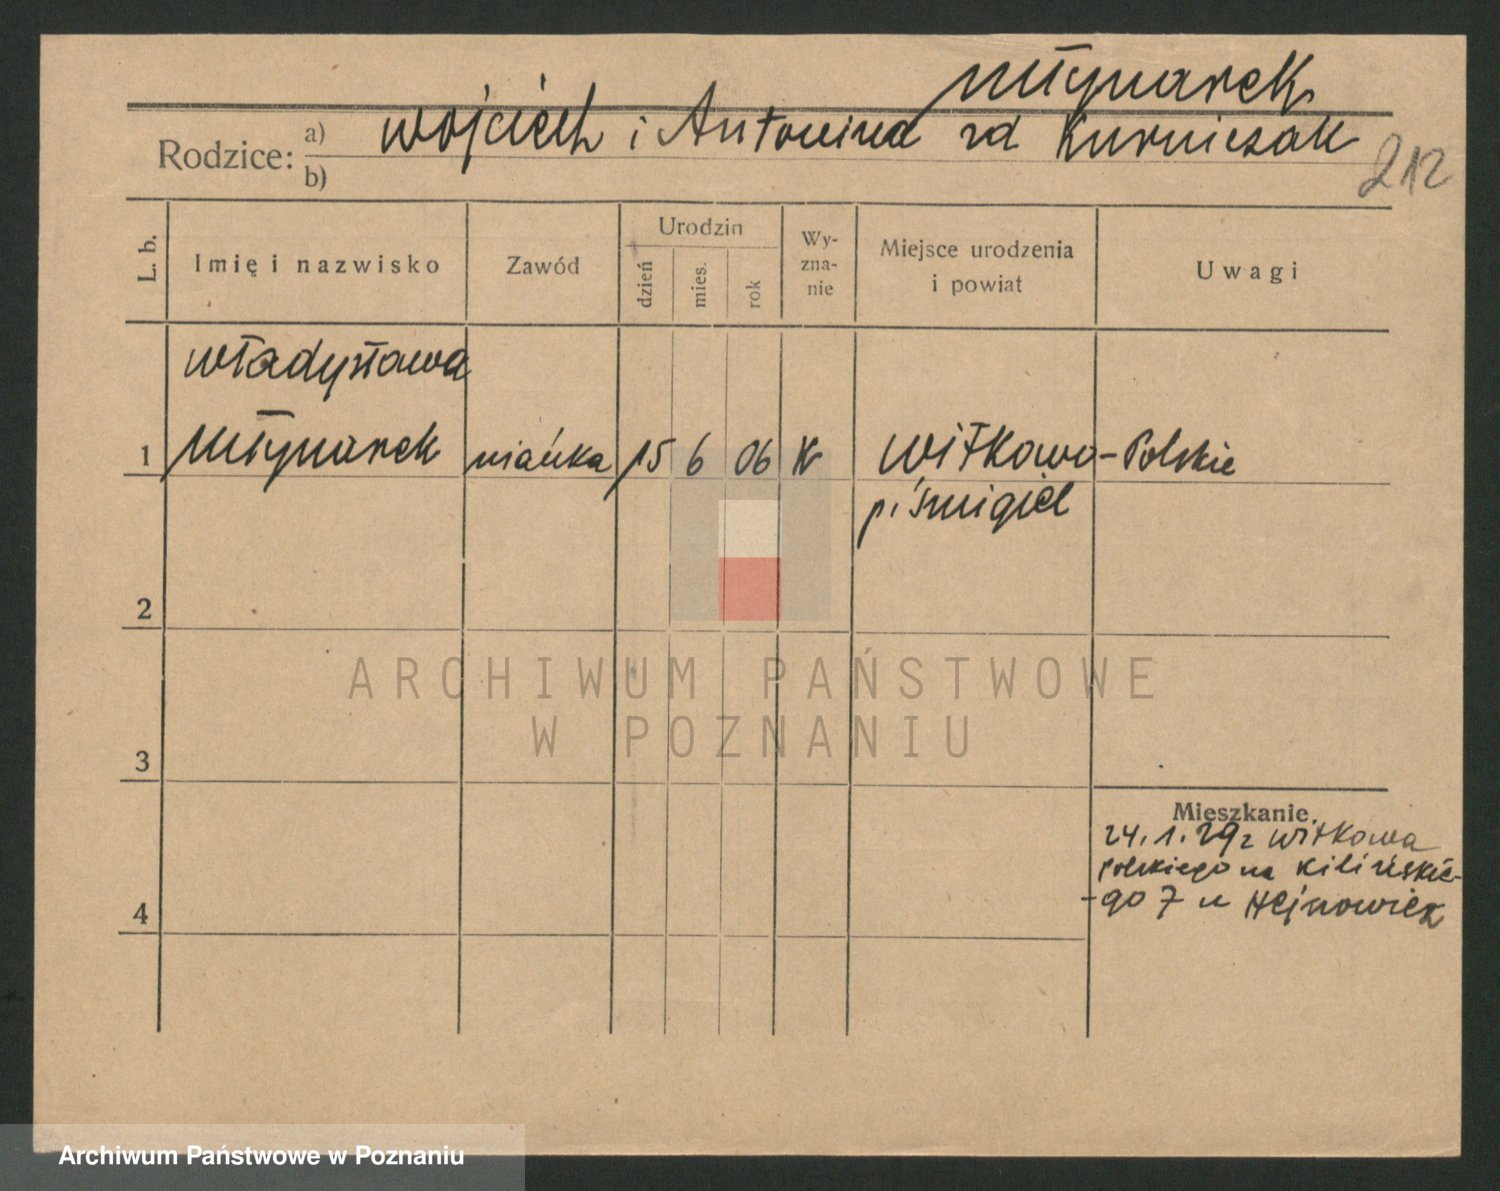 Młynarek
Rodzice: a) Wojciech i Antonina zd Kurniczak
b)
212
L. b.
Imię i nazwisko
Zawód
Urodzin
dzień
mies.
rok
Wy-
zna-
nie
Miejsce urodzenia
i powiat
Uwagi
Władysława
1 Młynarek niańka 15 6 06 K Witkowo-Polskie
p. Śmigiel
2
ARCHIWUM PAŃSTWOWE
W POZNANIU
3
Mieszkanie.
24.1.29 z Witkowa
Polskiego na Kilińskie-
-go 7 u Hejnowicz
4
Archiwum Państwowe w Poznaniu